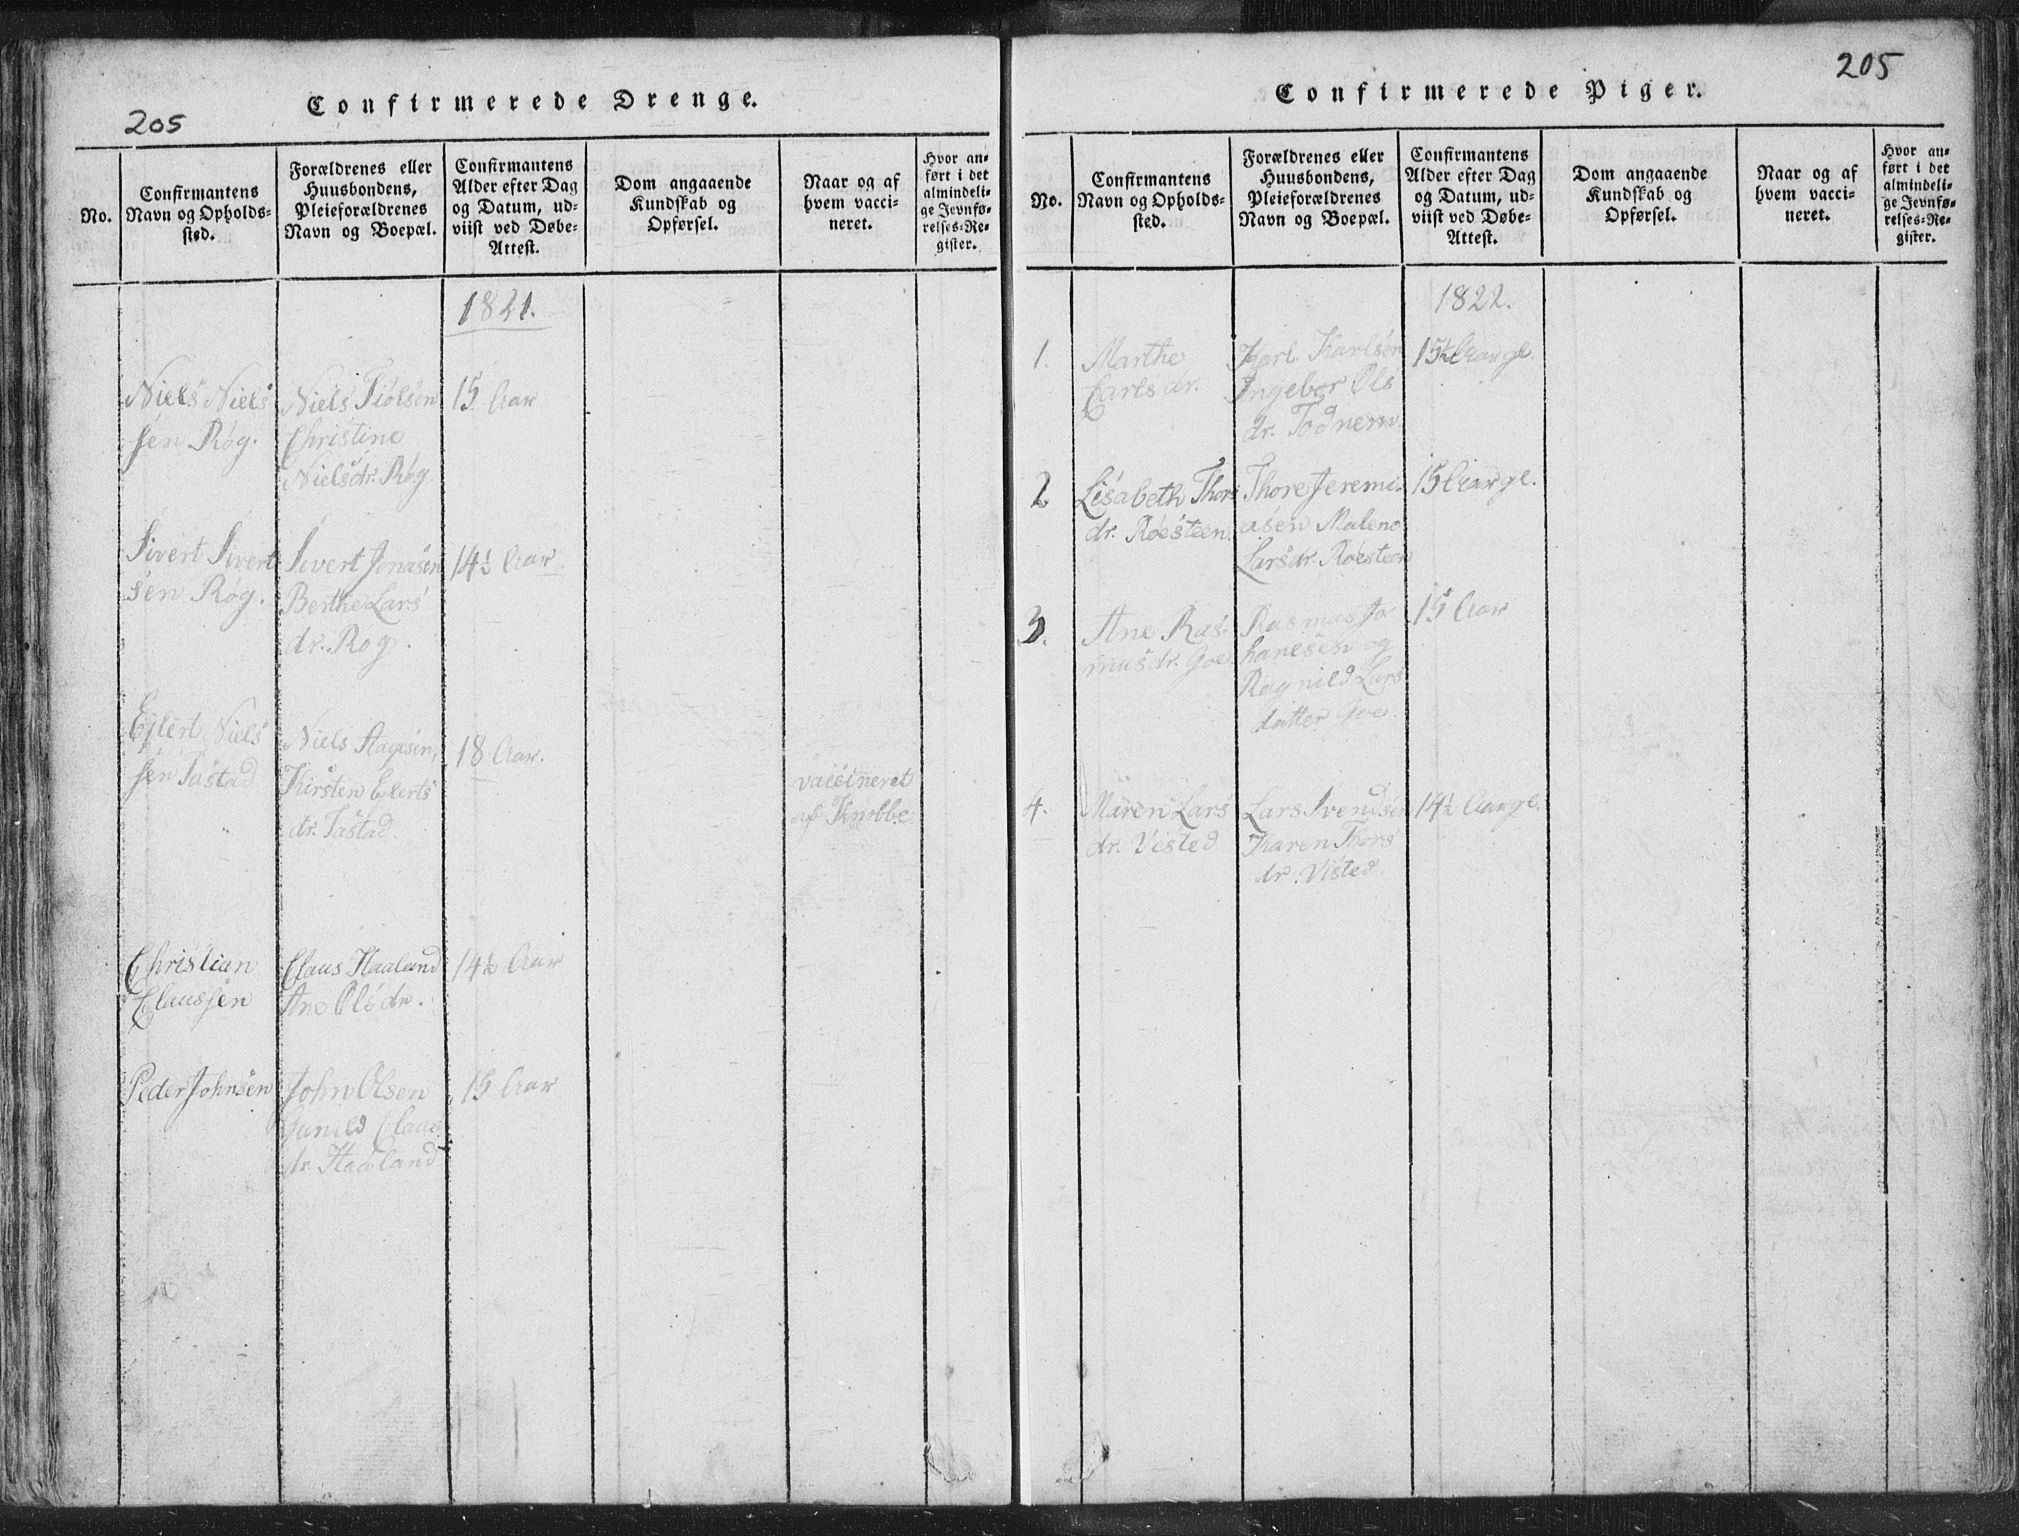 205
Confirmerede Drenge.
No.
Confirmantens
Navn og Opholds-
sted.
Forældrenes eller
Huusbondens,
Pleieforældrenes
Navn og Boepæl.
Confirmantens
Alder efter Dag
og Datum, ud-
viist ved Døbe-
Attest.
Dom angaaende
Kundskab og
Opførsel.
Naar og af
hvem vacci-
neret.
Hvor an-
ført i det
almindeli-
ge Jevnfø-
relses-Re-
gister.
1821.
Niels Niels
sen Røg.
Niels Fiølsen
Christine
Nielsdr. Røg.
15 Aar
Sivert Sivert
sen Røg.
Sivert Jonasen
Berthe Lars
dr. Røg.
14½ Aar
Eilert Niels
sen Tastad
Niels Aagesen,
Kirsten Eilerts
dr. Tastad.
18 Aar.
vaccineret
af Knobbe.
Christian
Claussen
Claus Haaland
Ane Olsdr.
14½ Aar
Peder Johnsen
John Olsen
Gunild Claus
dr. Haaland
15 Aar
205
Confirmerede Piger.
No.
Confirmantens
Navn og Opholds-
sted.
Forældrenes eller
Huusbondens,
Pleieforældrenes
Navn og Boepæl.
Confirmantens
Alder efter Dag
og Datum, ud-
viist ved Døbe-
Attest.
Dom angaaende
Kundskab og
Opførsel.
Naar og af
hvem vacci-
neret.
Hvor an-
ført i det
almindeli-
ge Jevnfø-
relses-Re-
gister.
1822.
1.
Marthe
Carlsdr.
Karl Karlsen
Ingebor Ols
dr. Todnem.
15½ Aar gl.
2
Lisabeth Thors
dr. Røesteen.
Thore Jeremi-
asen Malene
Larsdr. Røesteen
15 Aar gl.
3.
Ane Ras-
musdr. Goe
Rasmus Jo
hanesen og
Ragnild Lars
datter Goe.
15 Aar
4.
Maren Lars
dr. Visted
Lars Svendsen
Karen Thors
dr. Visted.
14½ Aar gl.